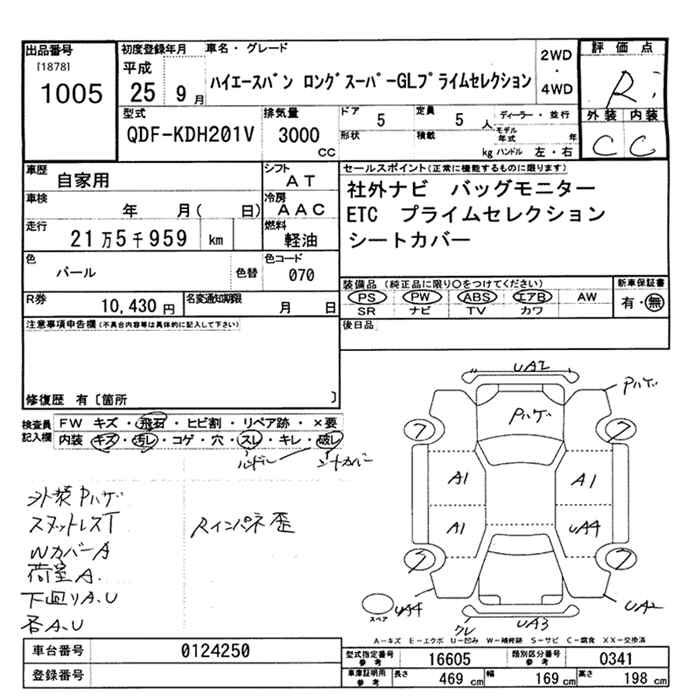 出品番号
[1878]
1005
初度登録年月
平成
25
9
月
車名・グレード
ハイエースバン ロングスーパーGLプライムセレクション
2WD
・
4WD
評価点
R
外装
内装
C
C
型式
QDF-KDH201V
排気量
3000
CC
ドア
5
定員
5
人
形状
積載
kg
ディーラー・並行
モデル年式
年
ハンドル 左・右
車歴
自家用
シフト
AT
車検
年 月( 日)
冷房
AAC
走行
21万5千959 km
燃料
軽油
色
パール
色替
色コード
070
R券
10,430 円
名変通知期限
月 日
セールスポイント(正常に機能するものに限ります)
社外ナビ バッグモニター
ETC プライムセレクション
シートカバー
装備品(純正品に限り○をつけてください)
PS PW ABS エアB AW
SR ナビ TV カワ
新車保証書
有・無
後日品
注意事項申告欄(不具合内容等は具体的に記入して下さい)
修復歴 有〔箇所 〕
検査員
記入欄
FW キズ・飛石・ヒビ割・リペア跡・×要
内装 キズ・汚レ・コゲ・穴・スレ・キレ・破レ
シートカバー
外装Pハゲ
スタットレスT
WカバーA
荷室A.
下廻りA.U
各A.U
Rインパネ歪
UA2
Pハゲ
Pハゲ
ワ
ワ
A1
A1
A1
UA4
ワ
ワ
スペア
UA4
クレ
UA3
UA2
A-キズ E-エクボ U-凹み W-補修跡 S-サビ C-腐食 XX-交換済
車台番号
0124250
登録番号
型式指定番号
参考
16605
類別区分番号
参考
0341
車庫証明用
参考
長さ
469 cm
幅
169 cm
高さ
198 cm